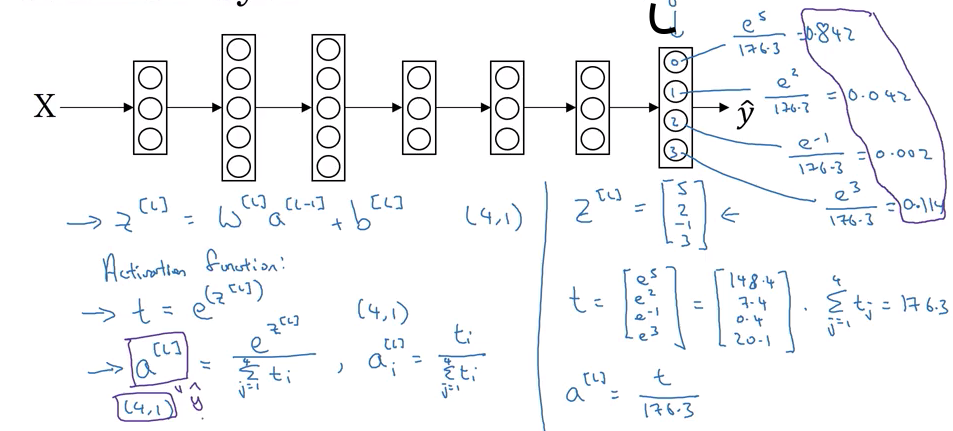 X
ŷ
0
1
2
3
e^5 / 176.3 = 0.842
e^2 / 176.3 = 0.042
e^-1 / 176.3 = 0.002
e^3 / 176.3 = 0.114
→ z^[L] = W^[L] a^[L-1] + b^[L] (4,1)
Activation function:
→ t = e^(z^[L]) (4,1)
→ a^[L] = e^z^[L] / ∑_{j=1}^{4} t_i , a_i^[L] = t_i / ∑_{j=1}^{4} t_i
(4,1) " ŷ
z^[L] = [5 2 -1 3] ←
t = [e^5 e^2 e^-1 e^3] = [148.4 7.4 0.4 20.1] . ∑_{j=1}^{4} t_j = 176.3
a^[L] = t / 176.3